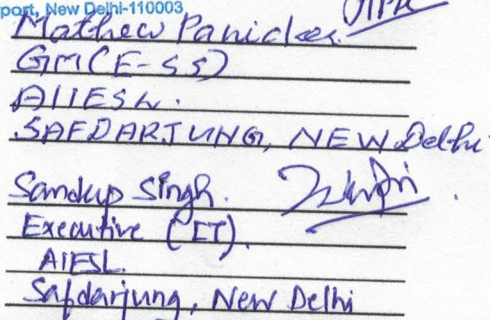 port, New Delhi-110003
Mathew Panicker
GM(E-SS)
AIIESL.
SAFDARJUNG, NEW Delhi
Sandup Singh.
Executive (IT).
AIESL.
Safdarjung, New Delhi